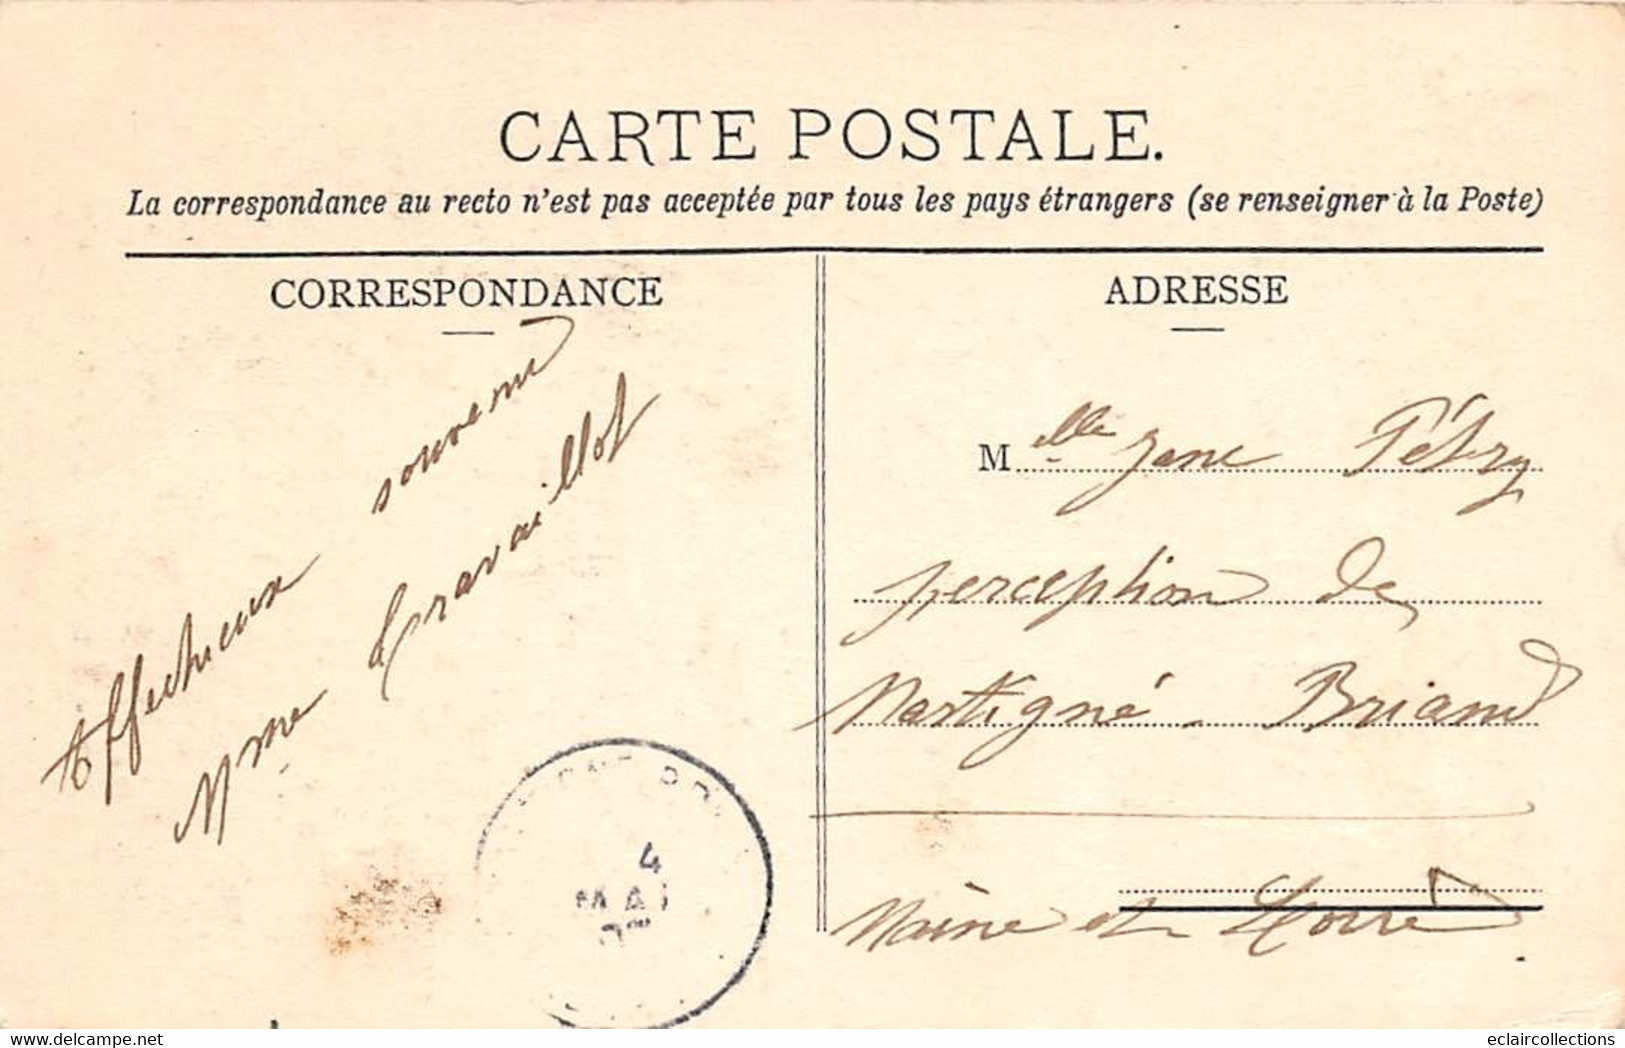 CARTE POSTALE.
La correspondance au recto n'est pas acceptée par tous les pays étrangers (se renseigner à la Poste)
CORRESPONDANCE
Affectueux souvenir
Mme Travaillot
4
MAI
ADRESSE
Melle Jane Pétry
perception de
Martigné-Briand
Maine et Loire
eclaircollections